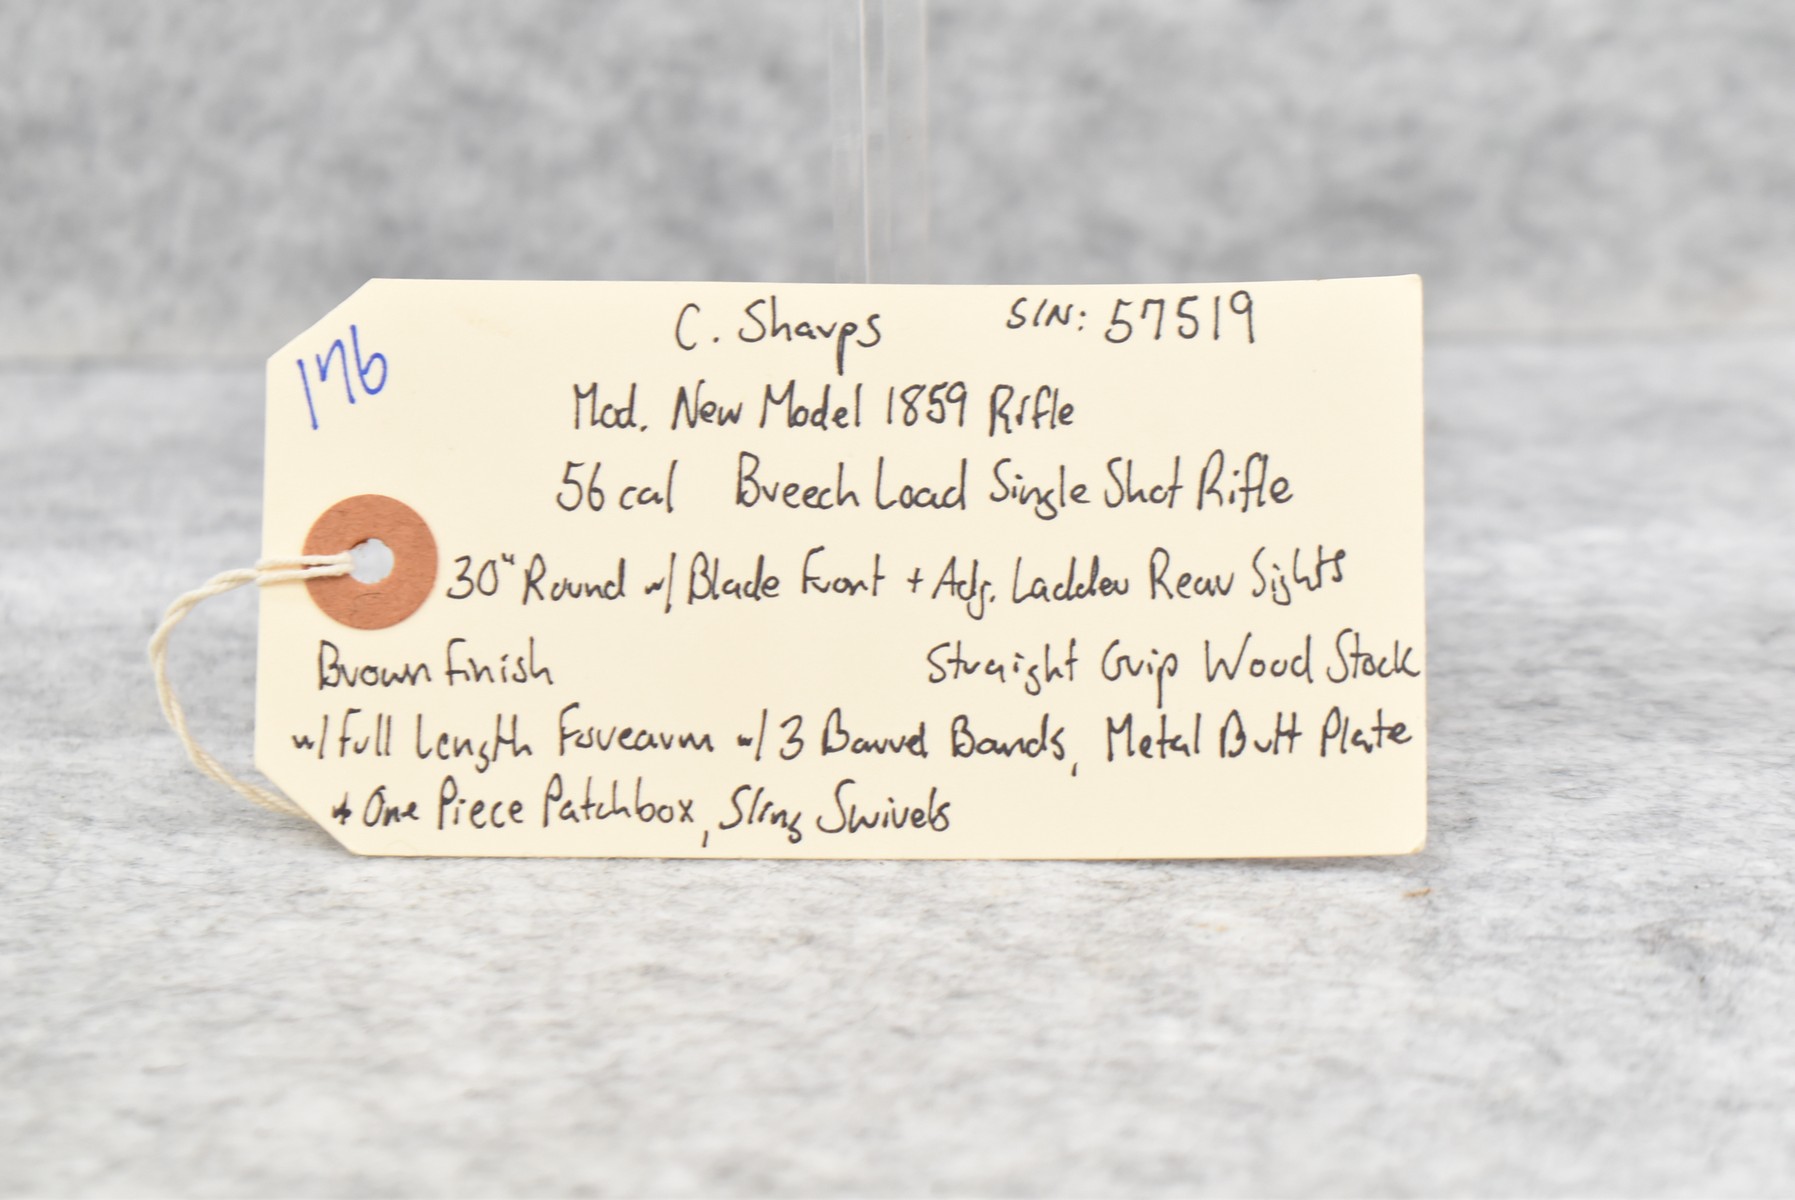 176
C. Sharps S/N: 57519
Mod. New Model 1859 Rifle
56 cal Breech Load Single Shot Rifle
30" Round w/ Blade Front + Adj. Ladder Rear Sights
Brown Finish Straight Grip Wood Stock
w/ Full Length Forearm w/ 3 Barrel Bands, Metal Butt Plate
+ One Piece Patchbox, Sling Swivels